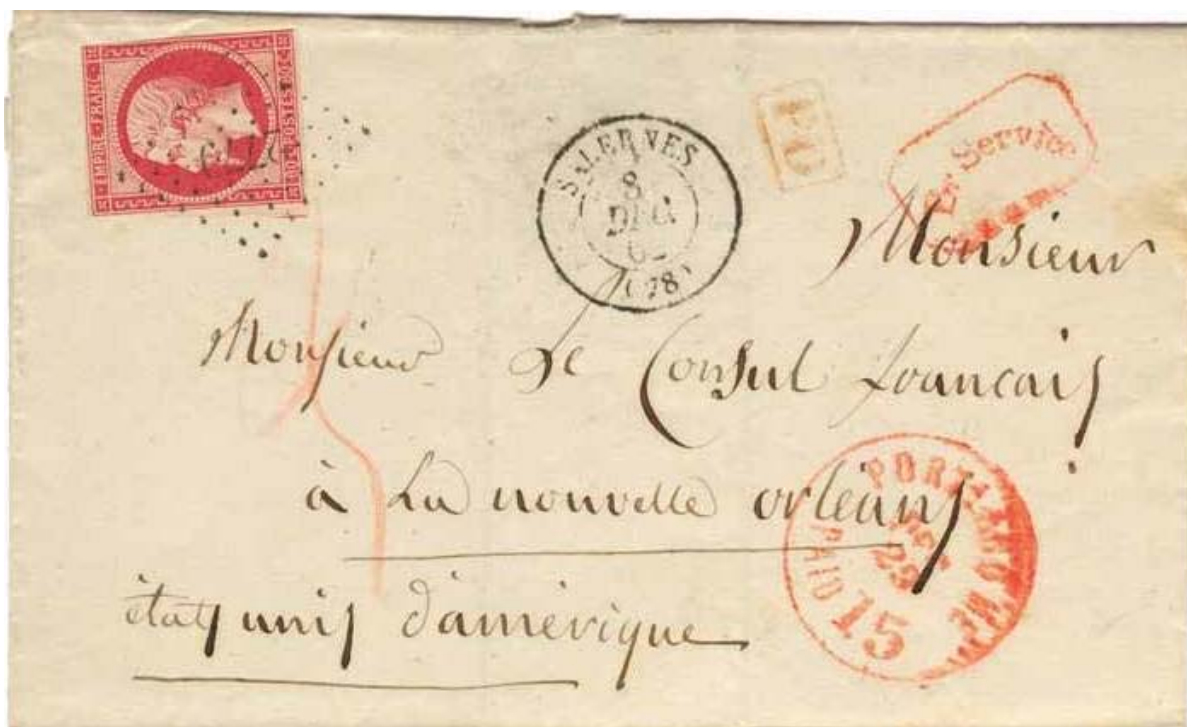 EMPIRE FRANC.
80 C. POSTES 80 C.
SALERNES
8
DEC.
(78)
PD
Br. Service
Monsieur
Monsieur Le Consul francais
à La nouvelle orleans
états unis d'amérique
PORTLAND ME.
DEC
29
PAID 15